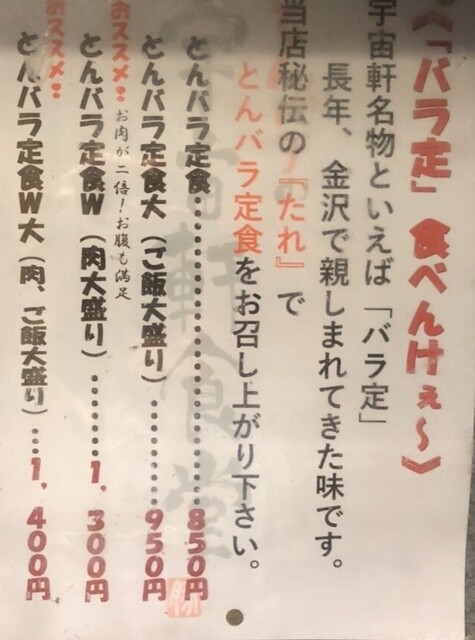 《「バラ定」食べんけぇ〜》
宇宙軒名物といえば「バラ定」
長年、金沢で親しまれてきた味です。
当店秘伝の『たれ』で
とんバラ定食をお召し上がり下さい。
とんバラ定食・・・・・・・・・・・・・・・・850円
とんバラ定食大（ご飯大盛り）・・・・・・・950円
おススメ！お肉が二倍！お腹も満足
とんバラ定食W（肉大盛り）・・・・・・・・1,300円
おススメ！
とんバラ定食W大（肉、ご飯大盛り）・・・1,400円
宇宙軒食堂